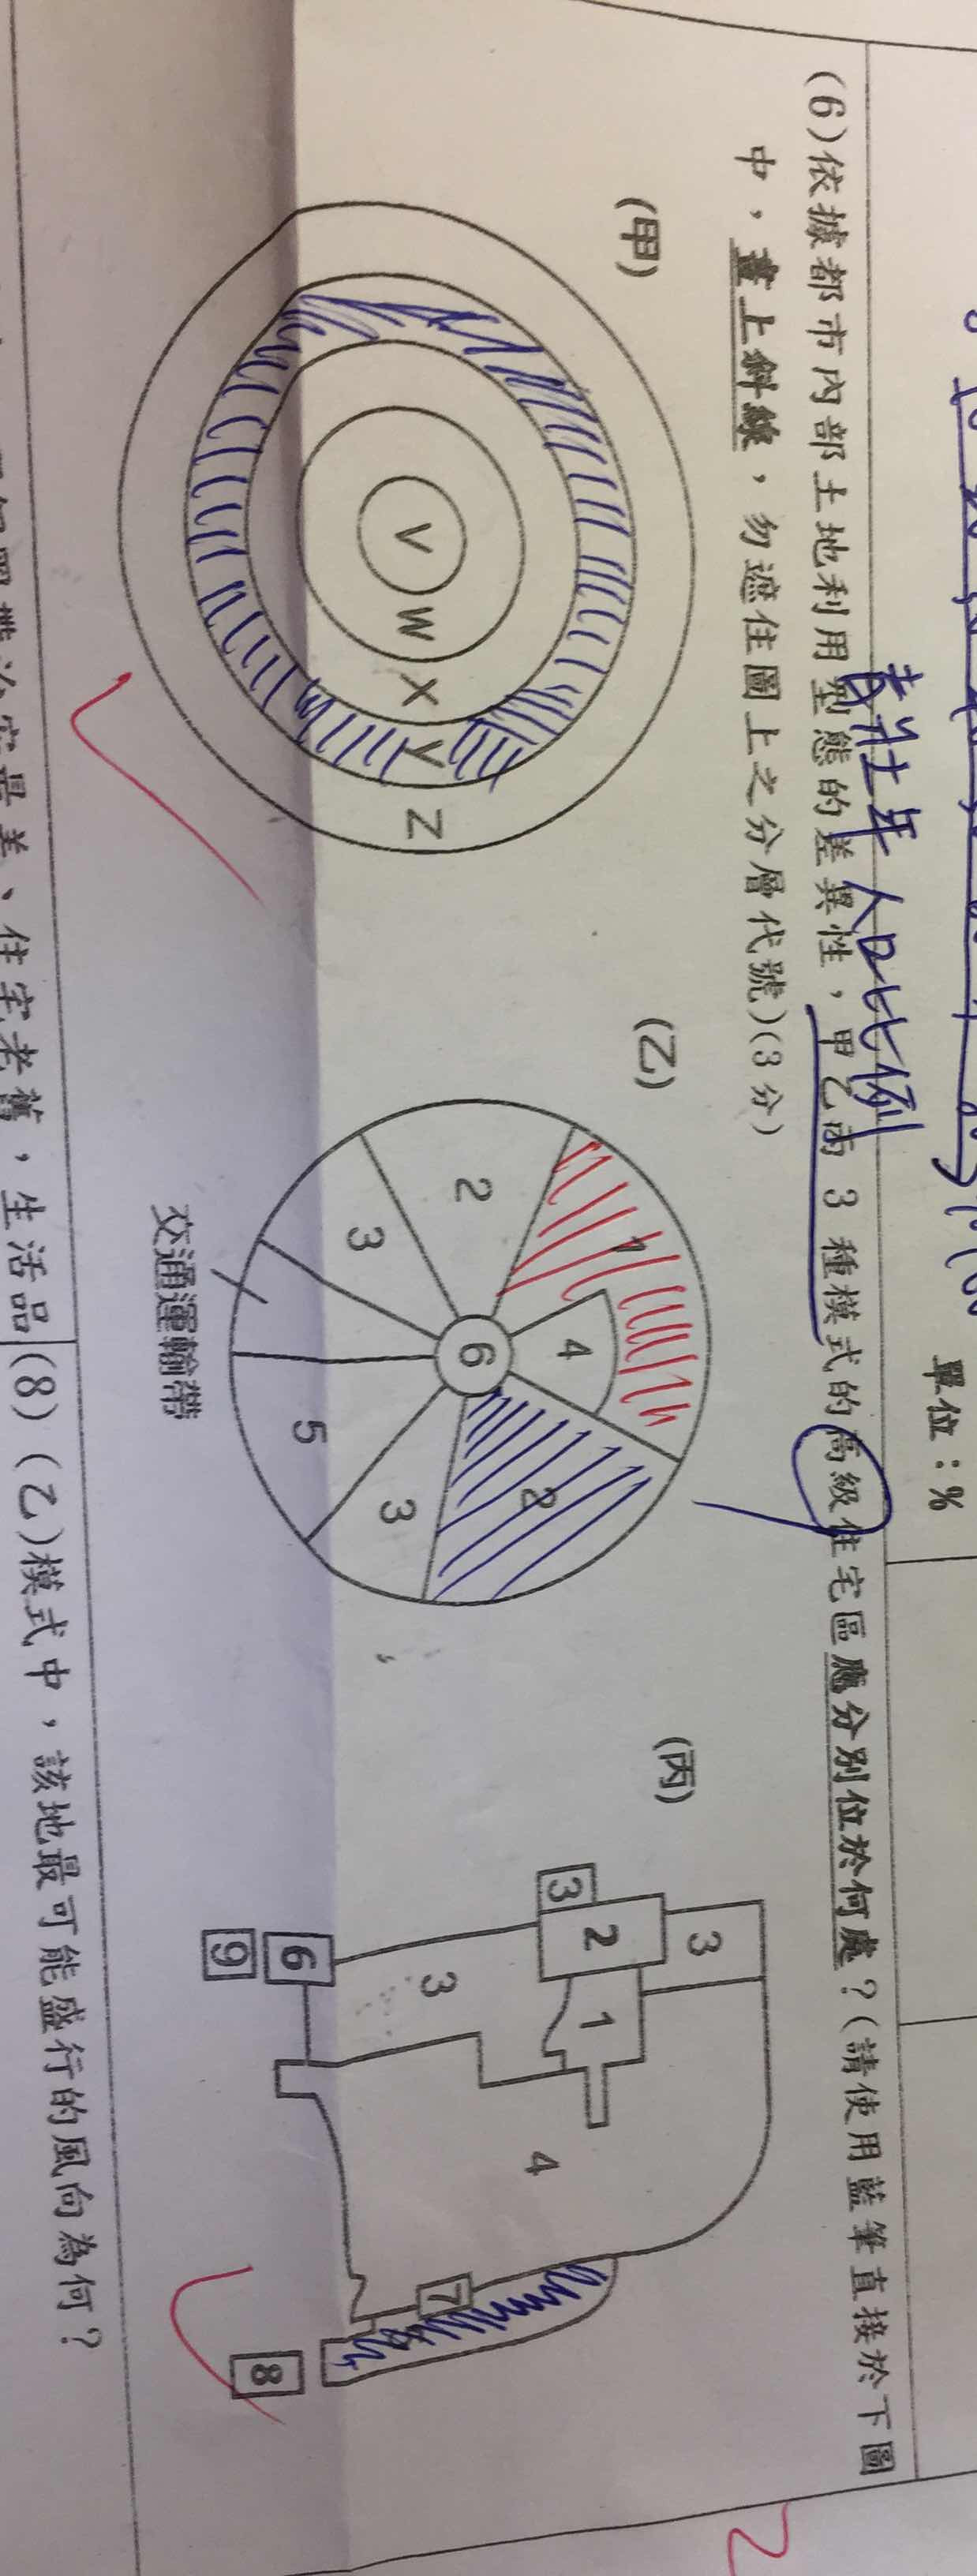 單位：%
青壯年人口比例
(6)依據都市內部土地利用型態的差異性，甲乙丙 3 種模式的高級住宅區應分別位於何處？(請使用藍筆直接於下圖
中，畫上斜線，勿遮住圖上之分層代號)(3分)
(甲)
V
W
X
Y
Z
(乙)
1
2
4
3
6
2
3
5
交通運輸帶
(丙)
3
3
2
1
3
6
9
4
7
8
2
、住宅老舊，生活品
(8) (乙)模式中，該地最可能盛行的風向為何？